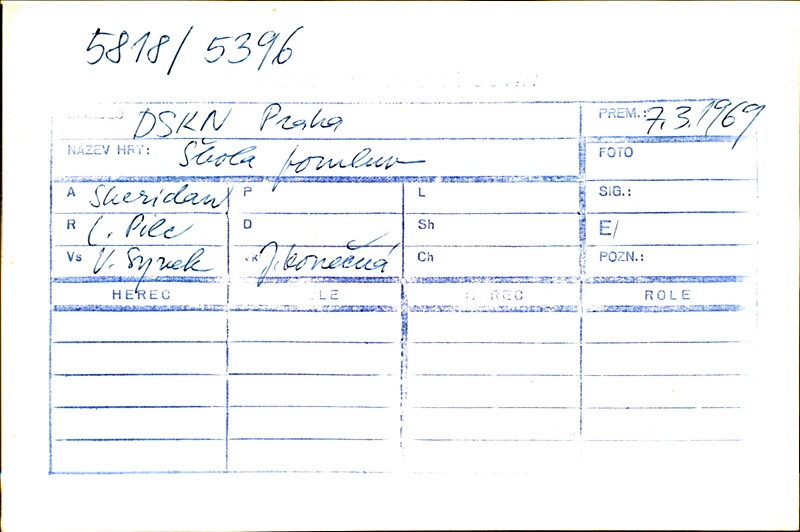 5818/5396
DSKN Praha PREM.: 7.3.1969
NÁZEV HRY: Škola pomluv FOTO
A Sheridan P L SIG.:
R L. Pilc D Sh E/
Vs V. Synek VK J. Konečná Ch POZN.:
HEREC ROLE